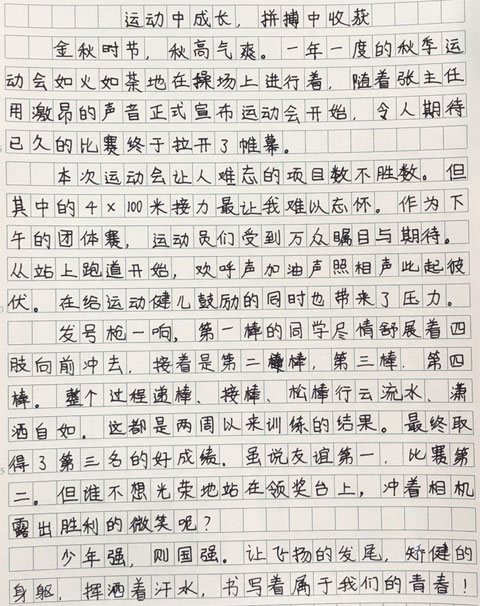 运动中成长，拼搏中收获
金秋时节，秋高气爽。一年一度的秋季运
动会如火如荼地在操场上进行着，随着张主任
用激昂的声音正式宣布运动会开始，令人期待
已久的比赛终于拉开了帷幕。
本次运动会让人难忘的项目数不胜数。但
其中的4×100米接力最让我难以忘怀。作为下
午的团体赛，运动员们受到万众瞩目与期待。
从站上跑道开始，欢呼声加油声照相声此起彼
伏。在给运动健儿鼓励的同时也带来了压力。
发号枪一响，第一棒的同学尽情舒展着四
肢向前冲去，接着是第二棒，第三棒，第四
棒。整个过程递棒、接棒、松棒行云流水、潇
洒自如。这都是两周以来训练的结果。最终取
得了第三名的好成绩。虽说友谊第一，比赛第
二。但谁不想光荣地站在领奖台上，冲着相机
露出胜利的微笑呢？
少年强，则国强。让飞扬的发尾，矫健的
身躯，挥洒着汗水，书写着属于我们的青春！